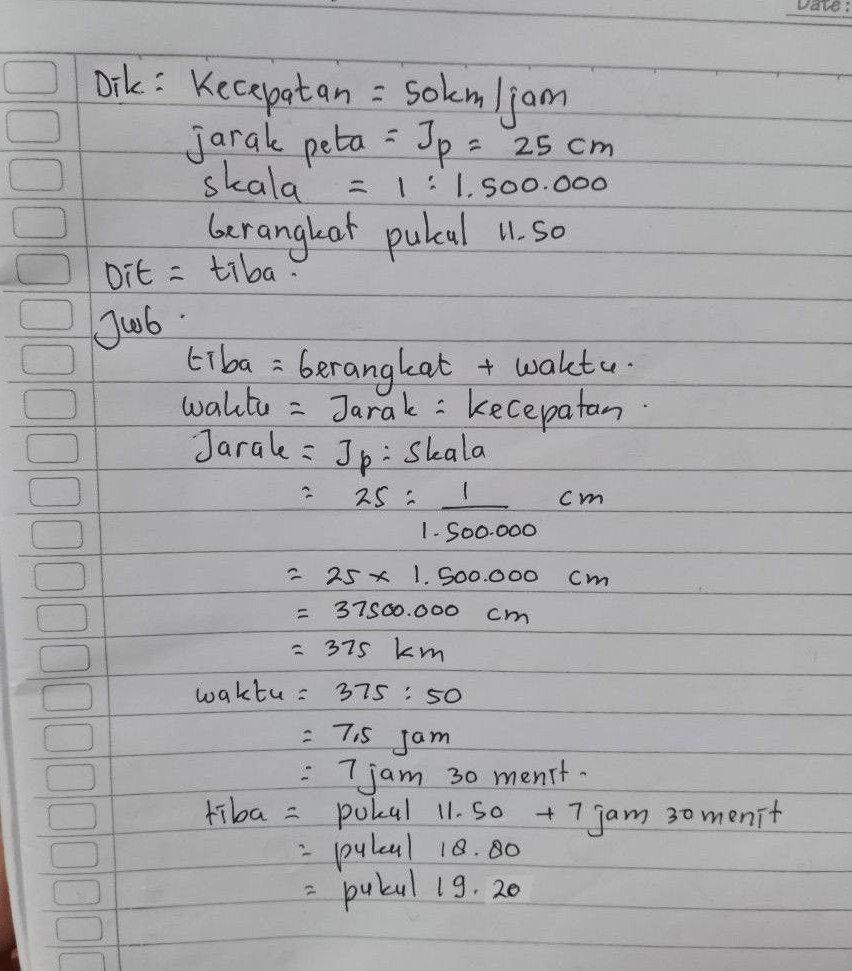 Date:
Dik: Kecepatan = 50km/jam
jarak peta = Jp = 25 cm
skala = 1 : 1.500.000
berangkat pukul 11.50
Dit = tiba.
Jwb.
tiba = berangkat + waktu.
waktu = Jarak : kecepatan.
Jarak = Jp : Skala
= 25 : 1 cm
1.500.000
= 25 x 1.500.000 cm
= 37500.000 cm
= 375 km
waktu = 375 : 50
= 7,5 jam
= 7 jam 30 menit.
tiba = pukul 11.50 + 7 jam 30 menit
= pukul 18.80
= pukul 19.20